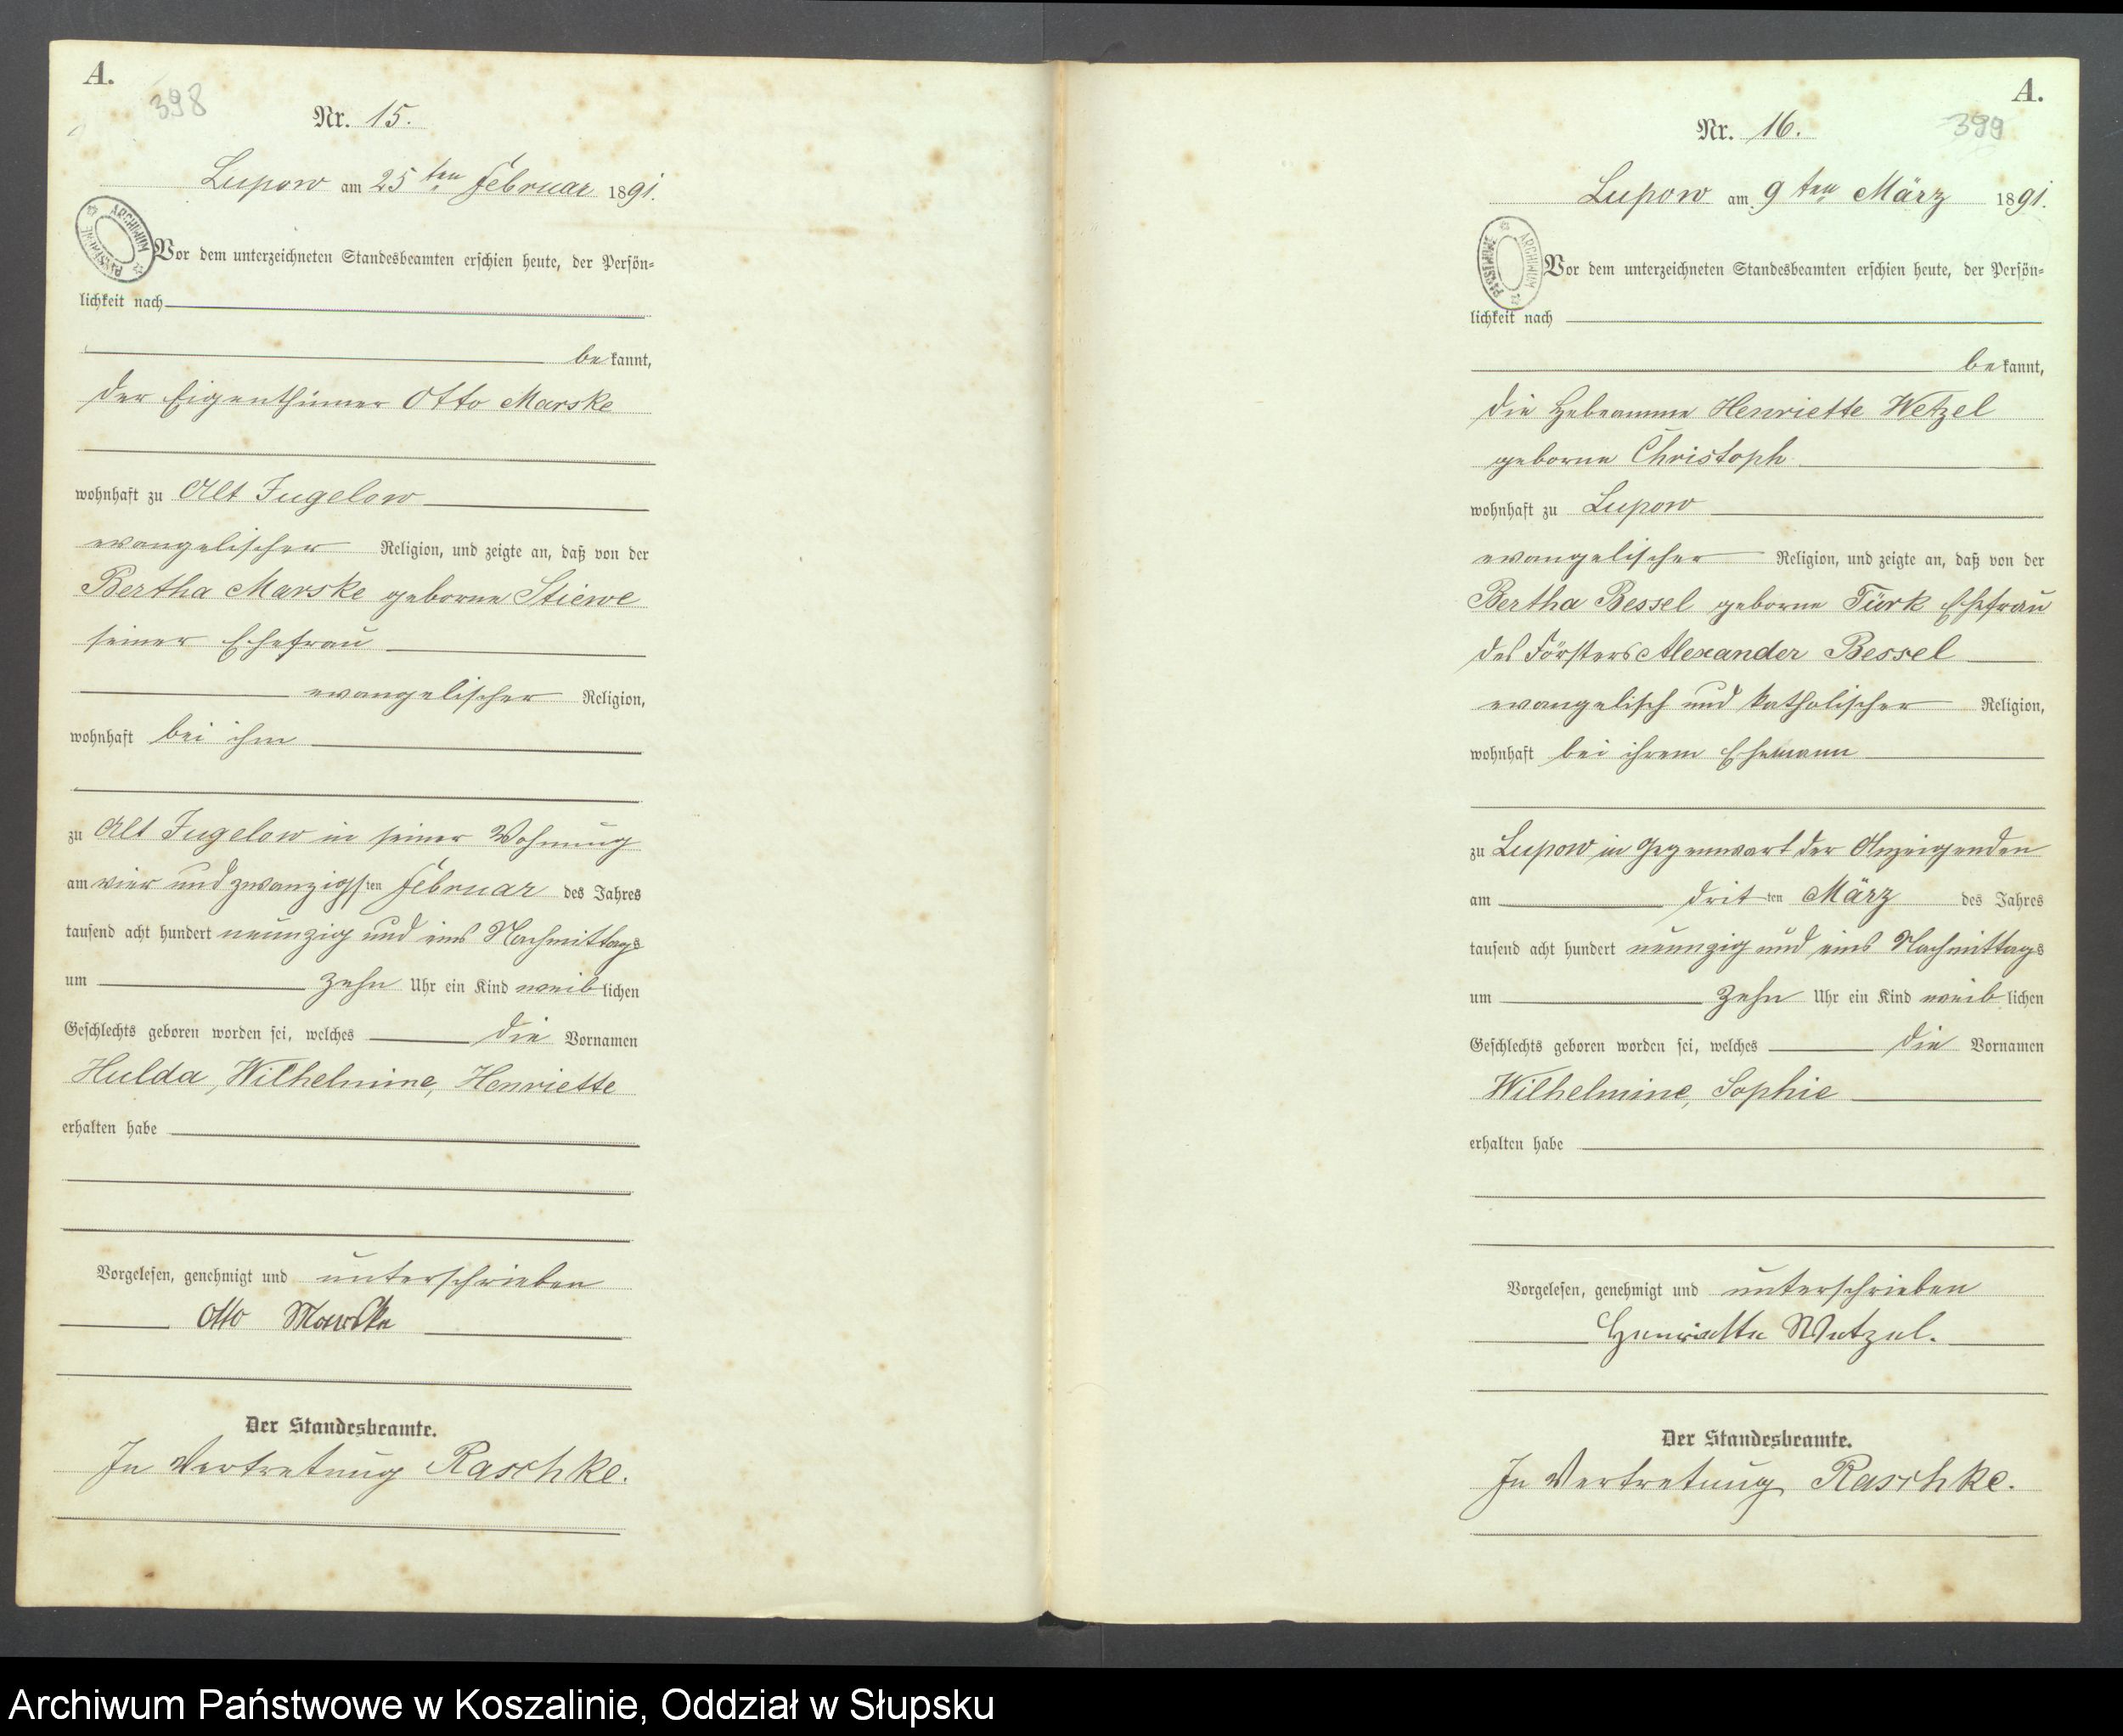 A.
398
Nr. 15.
Lupow am 25ten Februar 1891.
Vor dem unterzeichneten Standesbeamten erschien heute, der Persön-
lichkeit nach
bekannt,
der Eigenthümer Otto Marske
wohnhaft zu Alt Jugelow
evangelischer Religion, und zeigte an, daß von der
Bertha Marske geborne Stiewe
seiner Ehefrau
evangelischer Religion,
wohnhaft bei ihm
zu Alt Jugelow in seiner Wohnung
am vier und zwanzigsten Februar des Jahres
tausend acht hundert neunzig und eins Nachmittags
um zehn Uhr ein Kind weiblichen
Geschlechts geboren worden sei, welches die Vornamen
Hulda, Wilhelmine, Henriette
erhalten habe
Vorgelesen, genehmigt und unterschrieben
Otto Marske
Der Standesbeamte.
In Vertretung Raschke.
A.
399
Nr. 16.
Lupow am 9ten März 1891.
Vor dem unterzeichneten Standesbeamten erschien heute, der Persön-
lichkeit nach
bekannt,
die Hebeamme Henriette Wetzel
geborne Christoph
wohnhaft zu Lupow
evangelischer Religion, und zeigte an, daß von der
Bertha Bessel geborne Türk Ehefrau
des Försters Alexander Bessel
evangelisch und katholischer Religion,
wohnhaft bei ihrem Ehemann
zu Lupow in Gegenwart der Anzeigenden
am dritten März des Jahres
tausend acht hundert neunzig und eins Nachmittags
um zehn Uhr ein Kind weiblichen
Geschlechts geboren worden sei, welches die Vornamen
Wilhelmine, Sophie
erhalten habe
Vorgelesen, genehmigt und unterschrieben
Henriette Wetzel.
Der Standesbeamte.
In Vertretung Raschke.
ARCHIWUM PAŃSTWOWE
ARCHIWUM PAŃSTWOWE
Archiwum Państwowe w Koszalinie, Oddział w Słupsku